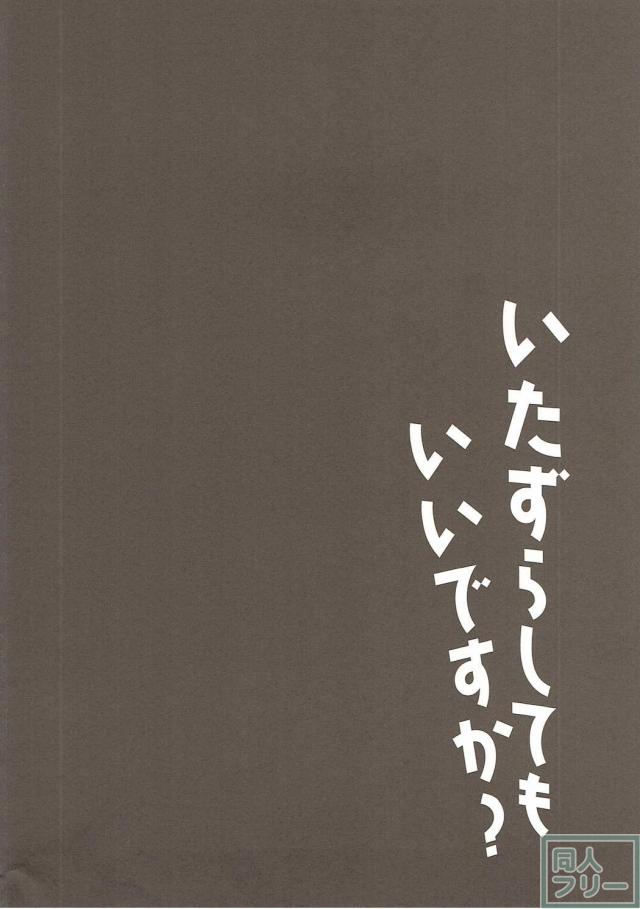 いたずらしても
いいですか?
同人
フリー